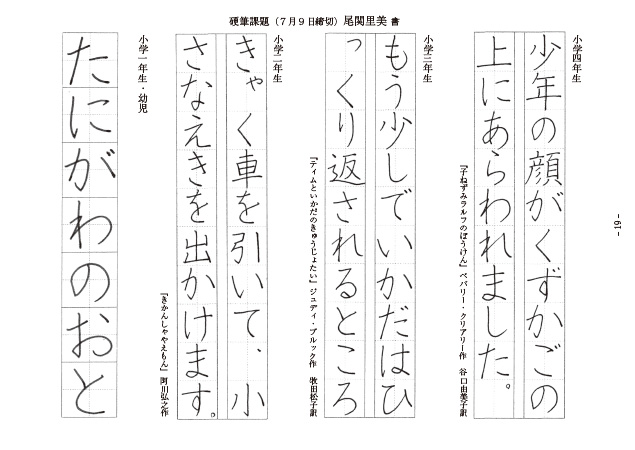 硬筆課題（７月９日締切）尾関里美 書
小学四年生
少年の顔がくずかごの
上にあらわれました。
『子ねずみラルフのぼうけん』ベバリー・クリアリー作　谷口由美子訳
小学三年生
もう少しでいかだはひ
っくり返されるところ
『ティムといかだのきゅうじょたい』ジュディ・ブルック作　牧田松子訳
小学二年生
きゃく車を引いて、小
さなえきを出かけます。
『きかんしゃやえもん』阿川弘之作
小学一年生・幼児
たにがわのおと
- 19 -